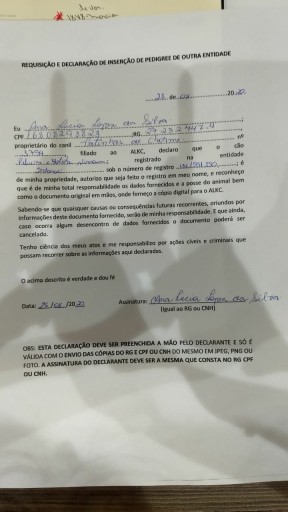 REQUISIÇÃO E DECLARAÇÃO DE INSERÇÃO DE PEDIGREE DE OUTRA ENTIDADE
de 20
Eu Ana Lucia Lopes da Silva
CPF RG
proprietário do canil nº
filiado ao ALKC, declaro que o cão
registrado na entidade
sob o número de registro é
de minha propriedade, autorizo que seja feito o registro em meu nome, e reconheço
que é de minha total responsabilidade os dados fornecidos e a posse do animal bem
como o documento original em mãos, onde forneço a cópia digital para o ALKC.
Sabendo-se que quaisquer causas ou consequências futuras recorrentes, oriundos por
informações deste documento fornecido, serão de minha responsabilidade. E que ainda,
caso ocorra algum desencontro de dados fornecidos o documento poderá ser
cancelado.
Tenho ciência dos meus atos e me responsabilizo por ações cíveis e criminais que
possam recorrer sobre as informações aqui declaradas.
O acima descrito é verdade e dou fé
Data: /20 Assinatura: Ana Lucia Lopes da Silva
(Igual ao RG ou CNH)
OBS: ESTA DECLARAÇÃO DEVE SER PREENCHIDA A MÃO PELO DECLARANTE E SÓ É
VÁLIDA COM O ENVIO DAS CÓPIAS DO RG E CPF OU CNH DO MESMO EM JPEG, PNG OU
FOTO. A ASSINATURA DO DECLARANTE DEVE SER A MESMA QUE CONSTA NO RG CPF
OU CNH.